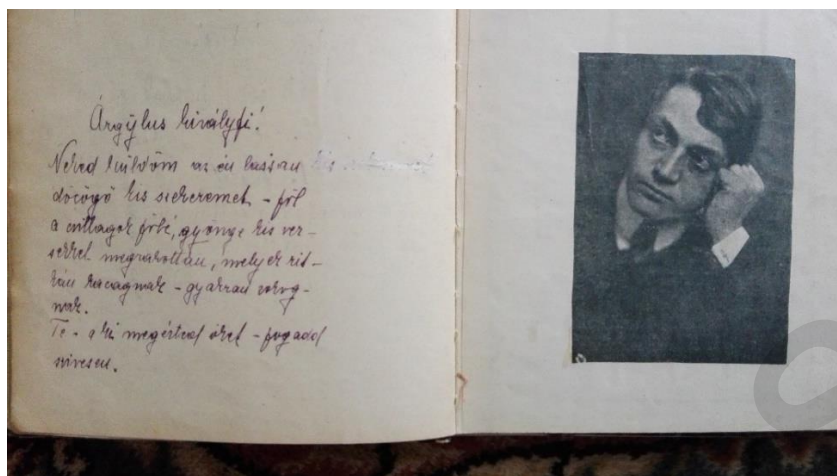 Árgÿlus királyfi!
Neked küldöm az én lassan
döcögő kis szekeremet – föl
a csillagok fölé, gyönge kis ver-
sekkel megrakottan, melyek rit-
kán kacagnak – gyakran zokog-
nak.
Te – a ki megérted őket – fogadd
szivesen.